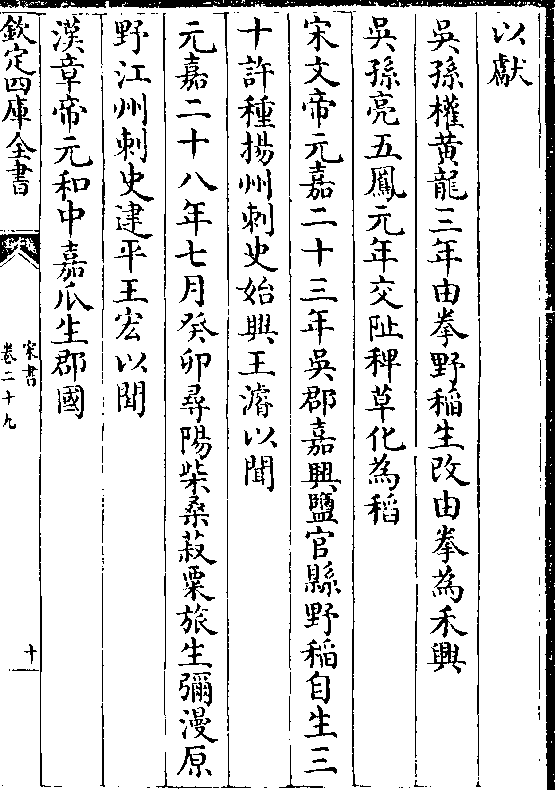 以獻
吳孫權黄龍三年由拳野稻生改由拳為禾興
吳孫亮五鳳元年交阯稗草化為稻
宋文帝元嘉二十三年吳郡嘉興鹽官縣野稻自生三
十許種揚州刺史始興王濬以聞
元嘉二十八年七月癸卯尋陽柴桑菽粟旅生彌漫原
野江州刺史建平王宏以聞
漢章帝元和中嘉瓜生郡國
欽定四庫全書
宋書
卷二十九
十